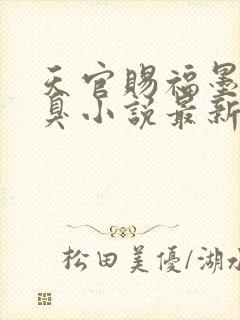 天官赐福墨
臭小说最新
松田美優/湖水